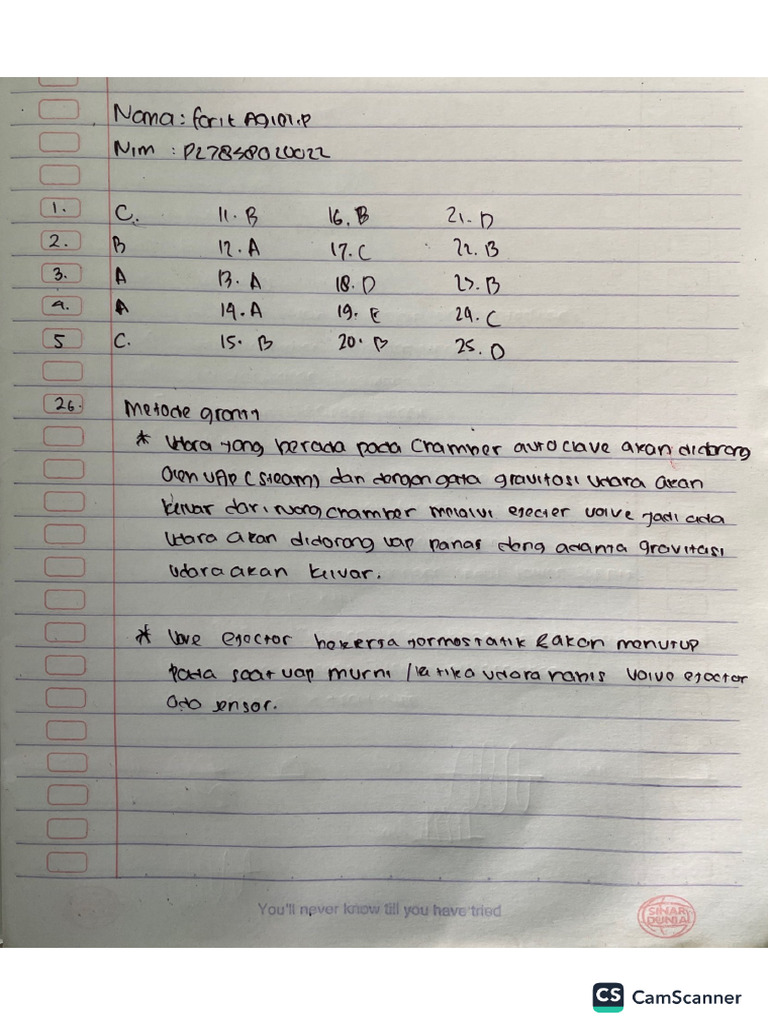 Nama : Farit Agidi.P
Nim : P27838020022
1. C. 11. B 16. B 21. D
2. B 12. A 17. C 22. B
3. A 13. A 18. D 23. B
4. A 14. A 19. E 24. C
5 C. 15. B 20. B 25. D
26. Metode
* Udara yang berada pada Chamber autoclave akan didorong
Oleh UAP (Steam) dan dengan gaya gravitasi Udara akan
keluar dari ruang chamber melalui ejecter valve jadi ada
Udara akan didorong uap panas dang adama gravitasi
Udara akan keluar.
* Valve ejector bekerja termostatik & akan menutup
Pada saat uap murni / ketika udara habis Valve ejector
Ada sensor.
You'll never know till you have tried
SINAR DUNIA
CS CamScanner